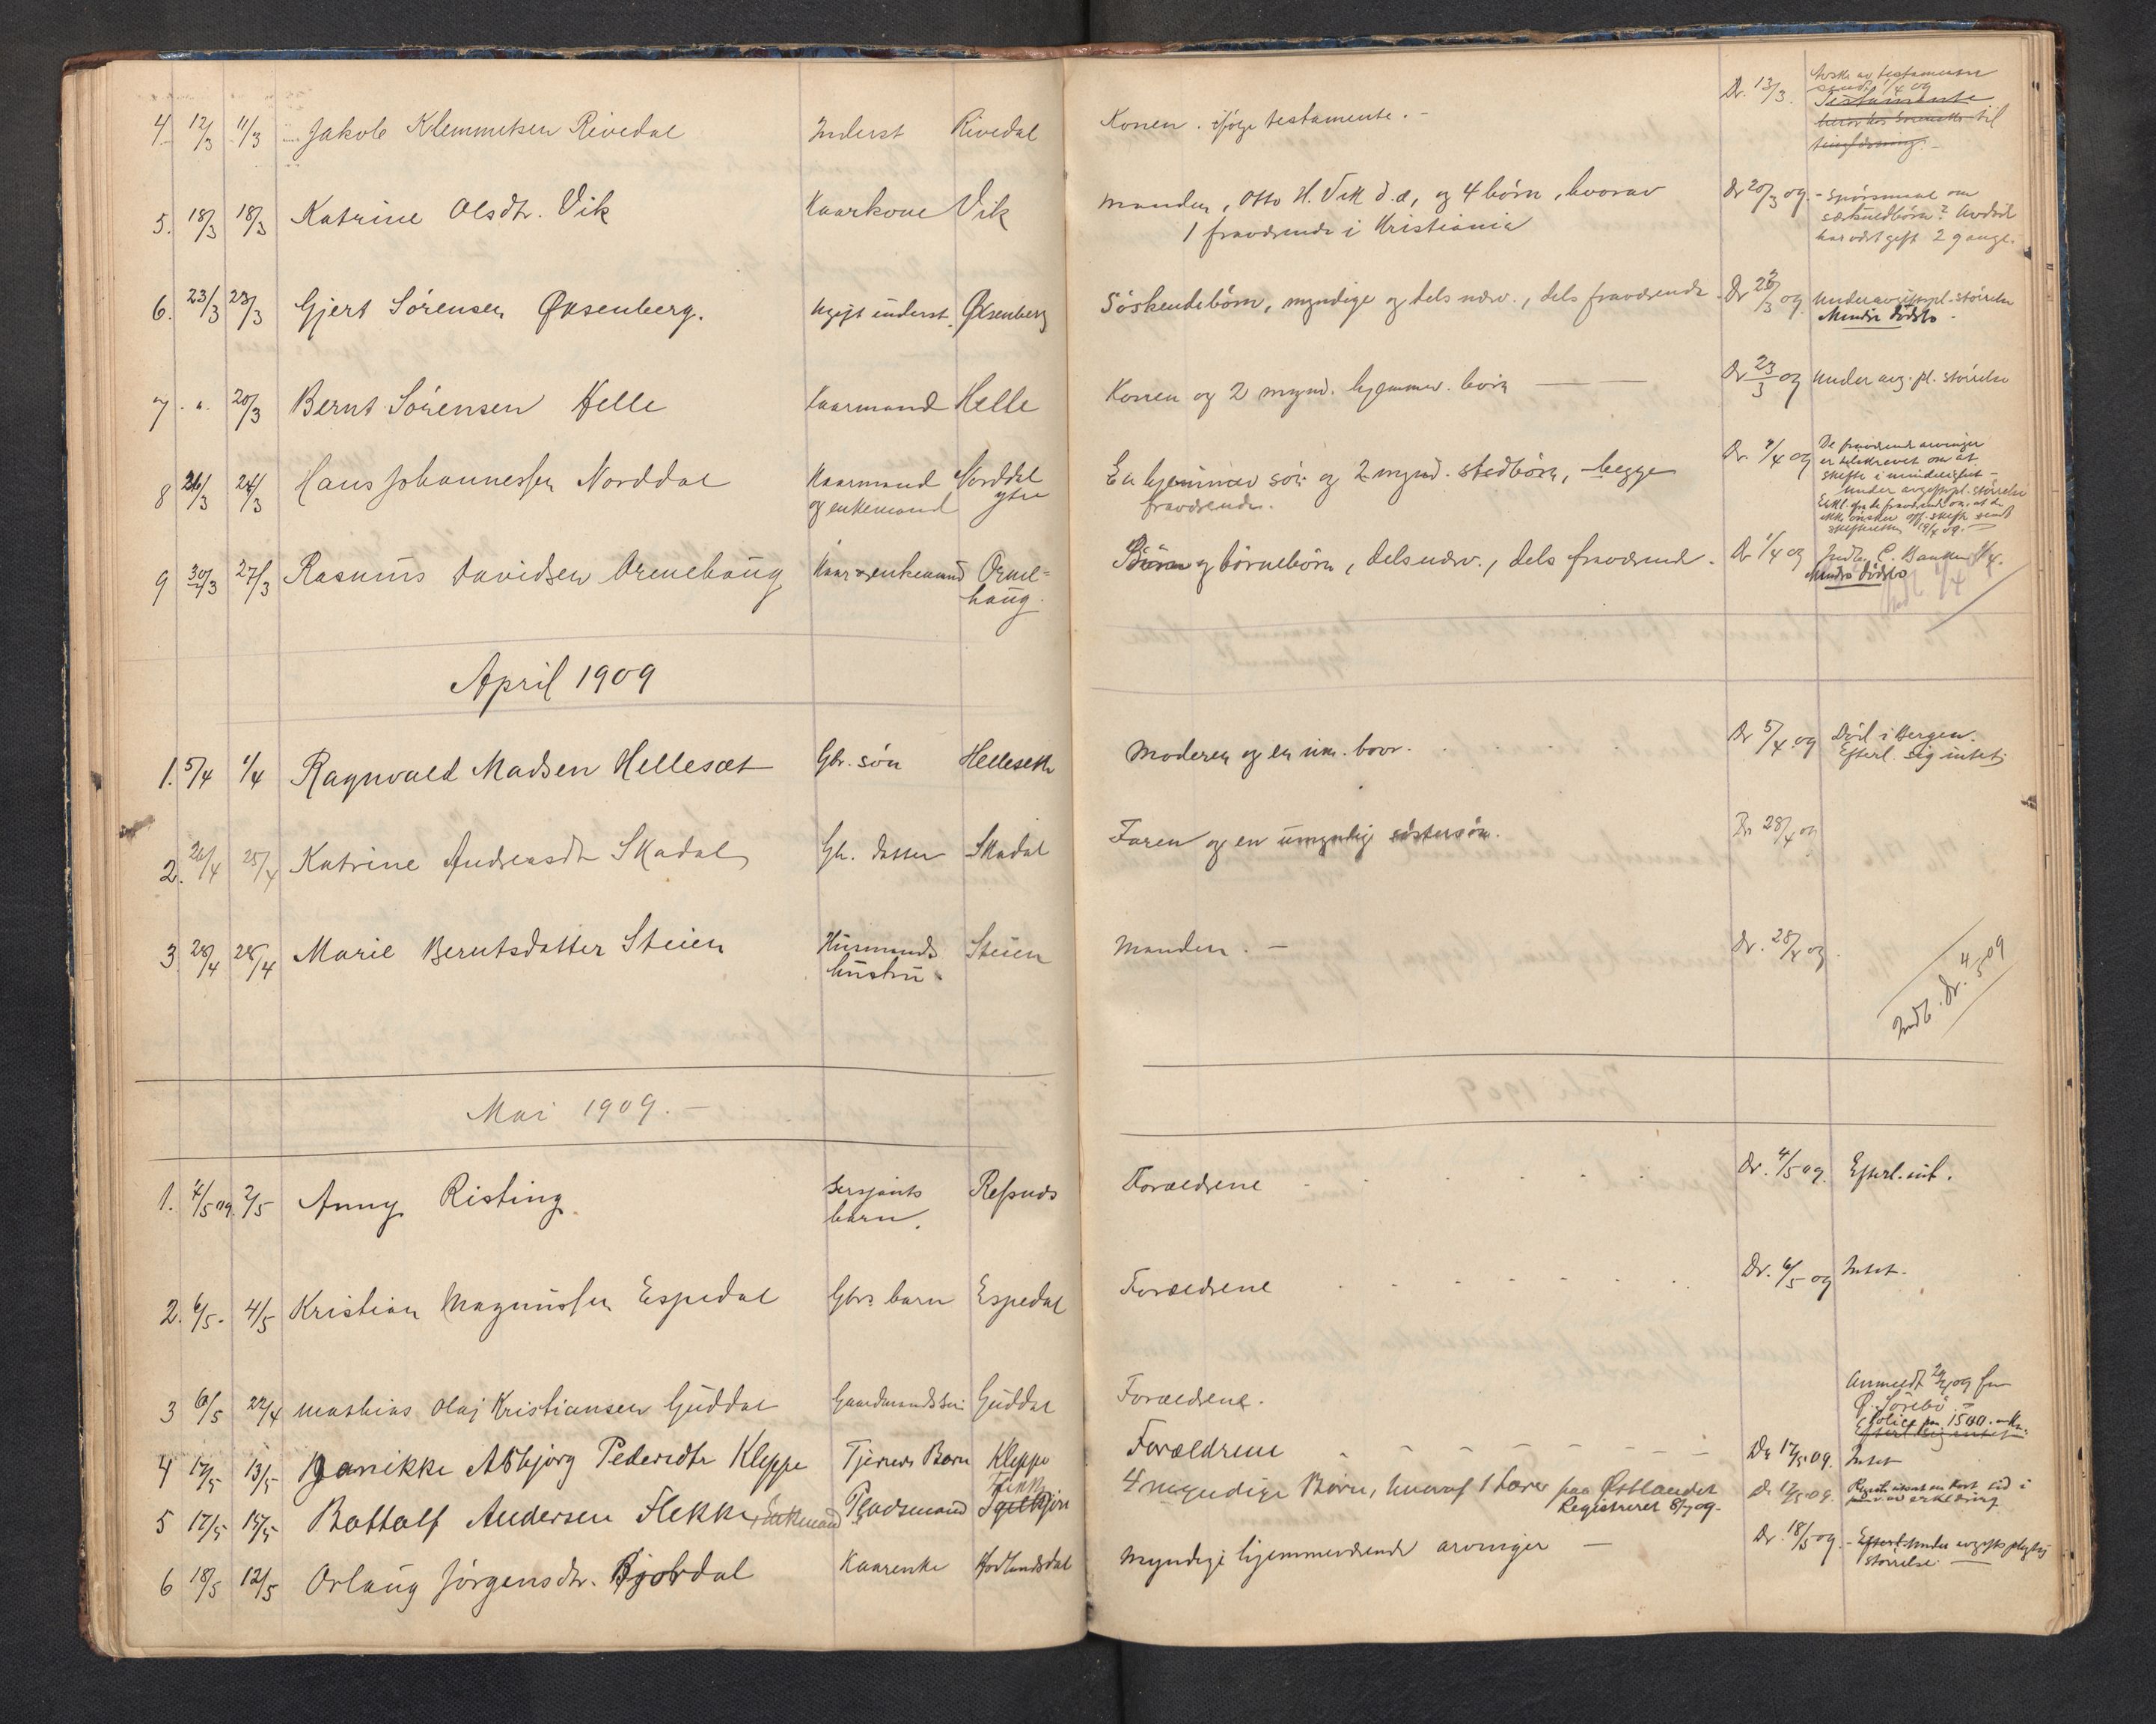 4. 12/3 11/3 Jakob Klemmetsen Rivedal Inderst Rivedal Konen. ifølge testamente. - Dr. 13/3.
testamente
sendt 1/4 09
Testamente
til
tinglæsning. -
5. 18/3 18/3 Katrine Olsdtr. Vik Kaarkone Vik Manden, Otto H. Vik d.æ, og 4 börn, hvorav Dr 20/3 09. - Spörsmaal om
1 fraværende i Kristiania særkuldbörn? Avdöd
har vært gift 2 gange.
6. 23/3 23/3 Gjert Sörensen Øksenberg. Ugift inderst. Øksenberg Söskendebörn, myndige og dels nærv., dels fraværende. Dr 26/3 09. Under avgiftspl. störrelse
Mindre dödsbo.
7. " 20/3 Bernt Sörensen Helle Kaarmand Helle Konen og 2 mynd. hjemmev. börn — — Dr 23/3 09 Under avg. pl. störrelse
8 26/3 24/3 Hans Johannessen Norddal Kaarmand Norddal En hjemmev sön og 2 mynd. stedbörn, - begge Dr. 1/4 09 De fraværende arvinger
og enkemand ytre fraværende. er tilskrevet om at
skifte i mindelighet -
Under avgiftspl. störrelse
Erkl. fra de fraværende om at de
ikke önsker off. skifte sendt
skifteretten 19/4 09. -
9 30/3 27/3 Rasmus Davidsen Ornehaug Kaar og enkemand Orne=
haug. Börn og börnebörn, dels nærv., dels fraværende. Dr 1/4 09 Indb.
Mindre dödsbo
April 1909
1. 5/4 1/4 Ragnvald Madsen Hellesæt Gbr. sön Helleseth Moderen og en um. bror. Dr 5/4 09 Död i Bergen.
Efterl. sig intet.
2. 26/4 25/4 Katrine Andreasdtr Skadal Gbr. datter Skadal Faren og en umyndig söstersön. Dr 28/4 09
3. 28/4 28/4 Marie Berntsdatter Steien Husmands Steien Manden. - Dr. 28/4 09.
hustru
Indb. Dr. 4/5 09
Mai 1909. -
1. 4/5 09. 2/5 Anny Risting. Sersjants Refsnes Forældrene Dr. 4/5 09. Efterl. int.
barn.
2. 6/5. 4/5 Kristian Magnussen Espedal Gbrs barn Espedal Forældrene Dr. 6/5 09 Intet.
3 6/5 22/4 Mathias Olaj Kristiansen Guddal Gaardmandssön Guddal Forældrene. Anmeldt 09 fra
Ø. Sörebö. -
Police paa 1500.- Kr.
Efterl. sig intet
4 17/5 13/5 Janikke Asbjørg Pedersdtr Kleppe Tjeners Barn Kleppe Forældrene Dr 17/5 09. Intet
5 17/5 15/5 Battolf Andersen Flekke, Enkemand Pladsmand Flekke 4 myndige Børn, hvoraf 1 Lærer paa Østlandet Dr 17/5 09.
Registreret 8/7 09.
6 18/5 12/5 Orlaug Jørgensdtr. Bjordal Kaarenke Hovlandsdal Myndige hjemmeværende arvinger — Dr. 18/5 09. - Efterl. under avgiftspligtig
störrelse. —